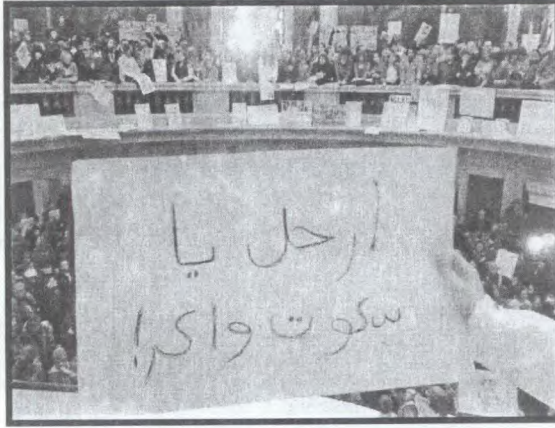 ارحل يا
سكوت واكر!